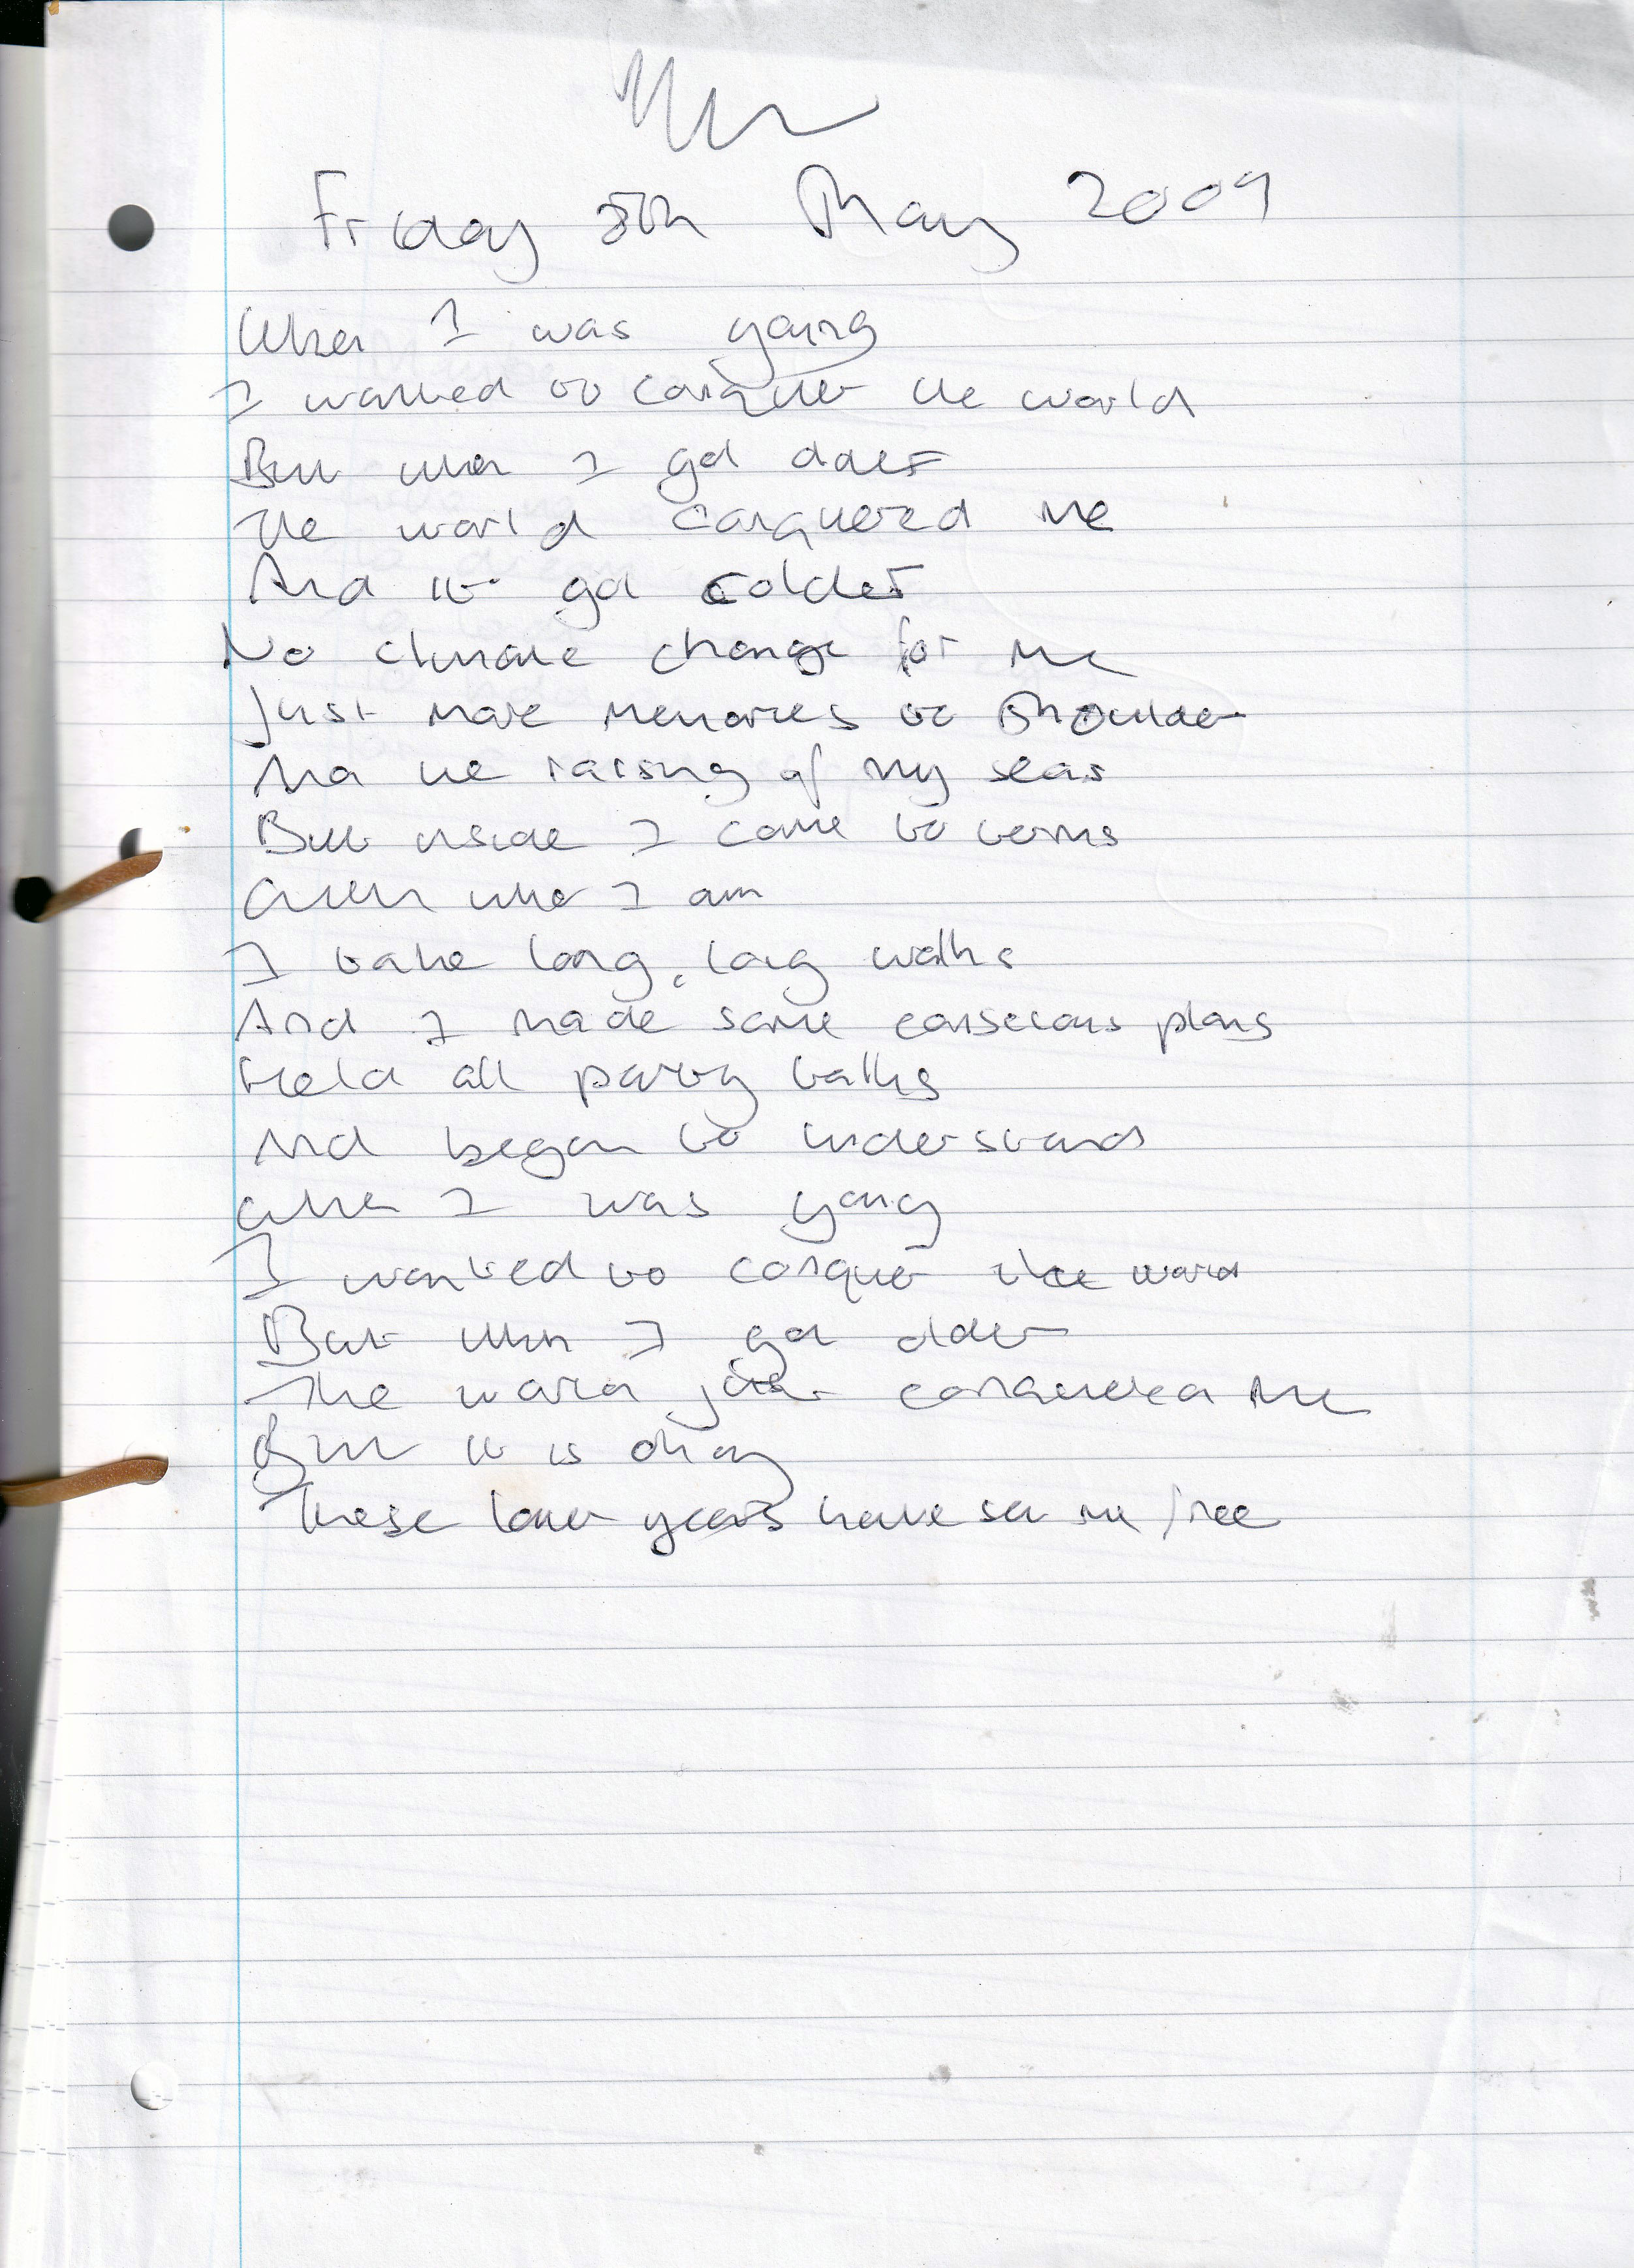 Friday 8th May 2009
When I was young
I wanted to conquer the world
But when I got older
The world conquered me
And it got colder
No climate change for me
Just more memories to shoulder
And the raising of my seas
But inside I come to terms
With who I am
I take long, long walks
And I made some conscious plans
Held all party talks
And began to understand
When I was young
I wanted to conquer the world
But when I got older
The world conquered me
But it is okay
These later years have set me free